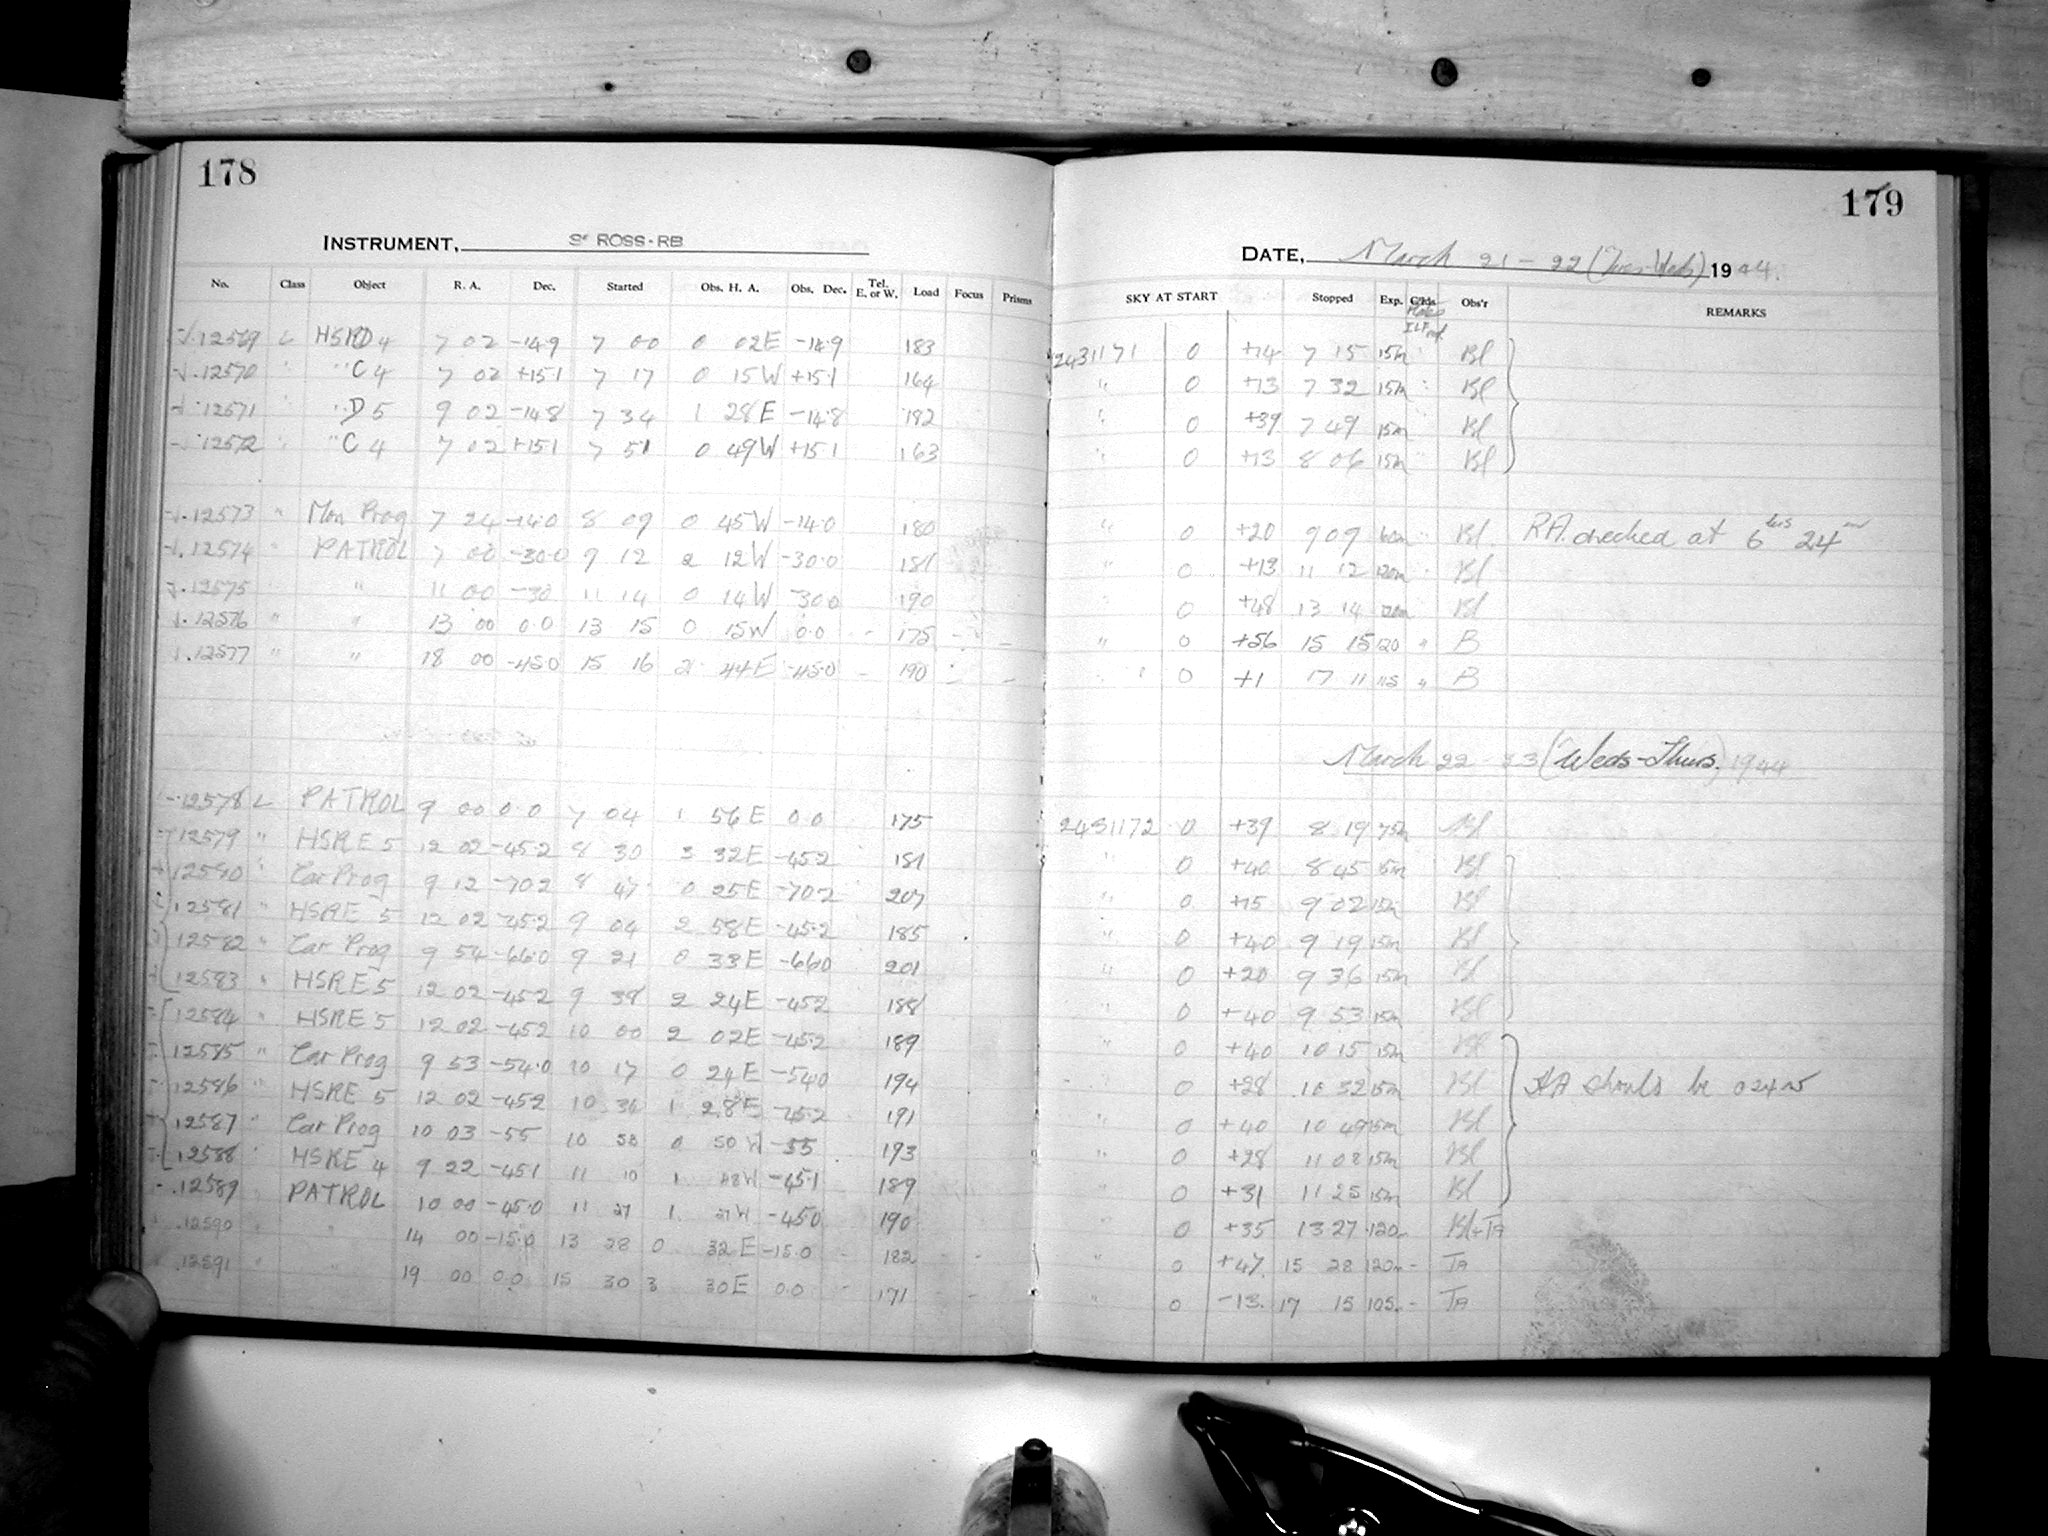 178
INSTRUMENT, 3" ROSS-RB
No. Class Object R. A. Dec. Started Obs. H. A. Obs. Dec. Tel. E. or W. Load Focus Prisms
12569 L HSRD 4 7 02 -14.9 7 00 0 02E -14.9 183
12570 " " C 4 7 02 +15.1 7 17 0 15W +15.1 164
12571 " " D 5 9 02 -14.8 7 34 1 28E -14.8 182
12572 " " C 4 7 02 +15.1 7 51 0 49W +15.1 163
12573 " Mon Prog 7 24 -14.0 8 09 0 45W -14.0 180
12574 " PATROL 7 00 -30.0 9 12 2 12W -30.0 181
12575 " 11 00 -30 11 14 0 14W -30.0 190
12576 " " 13 00 0.0 13 15 0 15W 0.0 - 175 - -
12577 " " 18 00 -45.0 15 16 2 44E -45.0 - 190 - -
12578 L PATROL 9 00 0.0 7 04 1 56E 0.0 175
12579 " HSRE 5 12 02 -45.2 8 30 3 32E -45.2 181
12580 " Car Prog 9 12 -70.2 8 47 0 25E -70.2 207
12581 " HSRE 5 12 02 -45.2 9 04 2 58E -45.2 185
12582 " Car Prog 9 54 -66.0 9 21 0 33E -66.0 201
12583 " HSRE 5 12 02 -45.2 9 38 2 24E -45.2 188
12584 " HSRE 5 12 02 -45.2 10 00 2 02E -45.2 189
12585 " Car Prog 9 53 -54.0 10 17 0 24E -54.0 194
12586 " HSRE 5 12 02 -45.2 10 34 1 28E -45.2 191
12587 " Car Prog 10 03 -55 10 50 0 50W -55 193
12588 " HSRE 4 9 22 -45.1 11 10 1 48W -45.1 189
12589 " PATROL 10 00 -45.0 11 27 1 27W -45.0 190
12590 " " 14 00 -15.0 13 28 0 32E -15.0 - 182 - -
12591 " " 19 00 0.0 15 30 3 30E 0.0 - 171 - -
179
DATE, March 21-22 (Tues-Weds) 1944.
SKY AT START Stopped Exp. Obs'r REMARKS
2431171 0 +14 7 15 15m Bl
" 0 +13 7 32 15m Bl
" 0 +39 7 49 15m Bl
" 0 +13 8 06 15m Bl
" 0 +20 9 09 60m Bl RA checked at 6hrs 24m
" 0 +13 11 12 120m Bl
" 0 +48 13 14 120m Bl
" 0 +56 15 15 120 " B
" 0 +1 17 11 115 " B
March 22-23 (Weds-Thurs) 1944
2431172 0 +39 8 19 75m Bl
" 0 +40 8 45 15m Bl
" 0 +15 9 02 15m Bl
" 0 +40 9 19 15m Bl
" 0 +20 9 36 15m Bl
" 0 +40 9 53 15m Bl
" 0 +40 10 15 15m Bl
" 0 +28 10 32 15m Bl HA should be 0 24W
" 0 +40 10 49 15m Bl
" 0 +28 11 08 15m Bl
" 0 +31 11 25 15m Bl
" 0 +35 13 27 120m Bl+TA
" 0 +47 15 28 120m - TA
" 0 -13 17 15 105m - TA